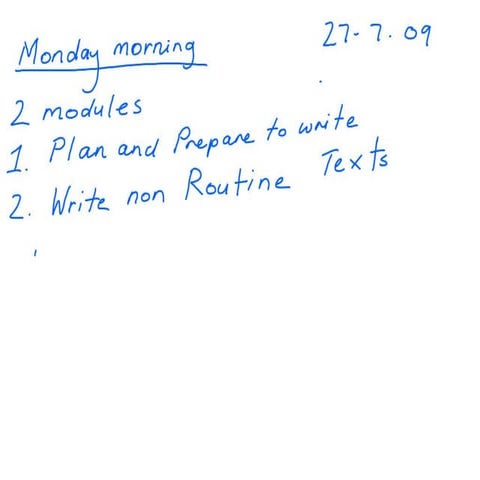 Monday morning 27-7.09
2 modules
1. Plan and Prepare to write
2. Write non Routine Texts